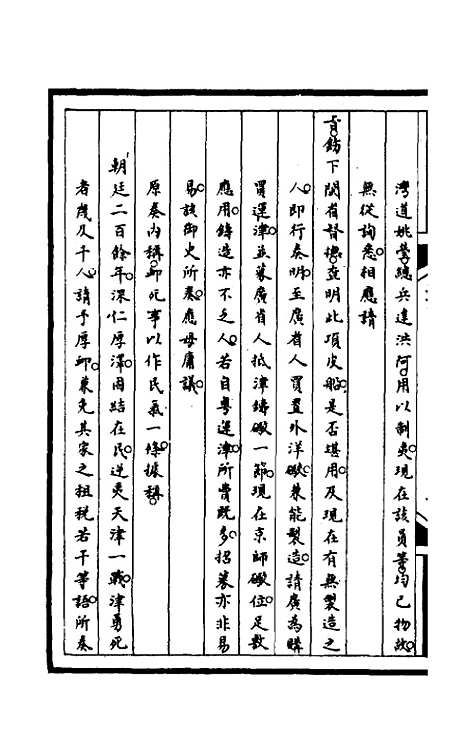 灣道姚瑩總兵達洪阿用以制夷現在該員等均已物故
無從詢悉相應請
旨飭下閩省督撫查明此項皮船是否堪用及現在有無製造之
人即行奏明至廣省人買置外洋礮兼能製造請廣為購
買運津並募廣省人抵津鑄礮一節現在京師礮位足敷
應用鑄造亦不乏人若自粵運津所費既多招募亦非易
易該御史所奏應毋庸議
原奏內稱卹死事以作民氣一條據稱
朝廷二百餘年深仁厚澤固結在民逆夷天津一戰津勇死
者幾及千人請予厚卹兼免其家之租稅若干等語所奏